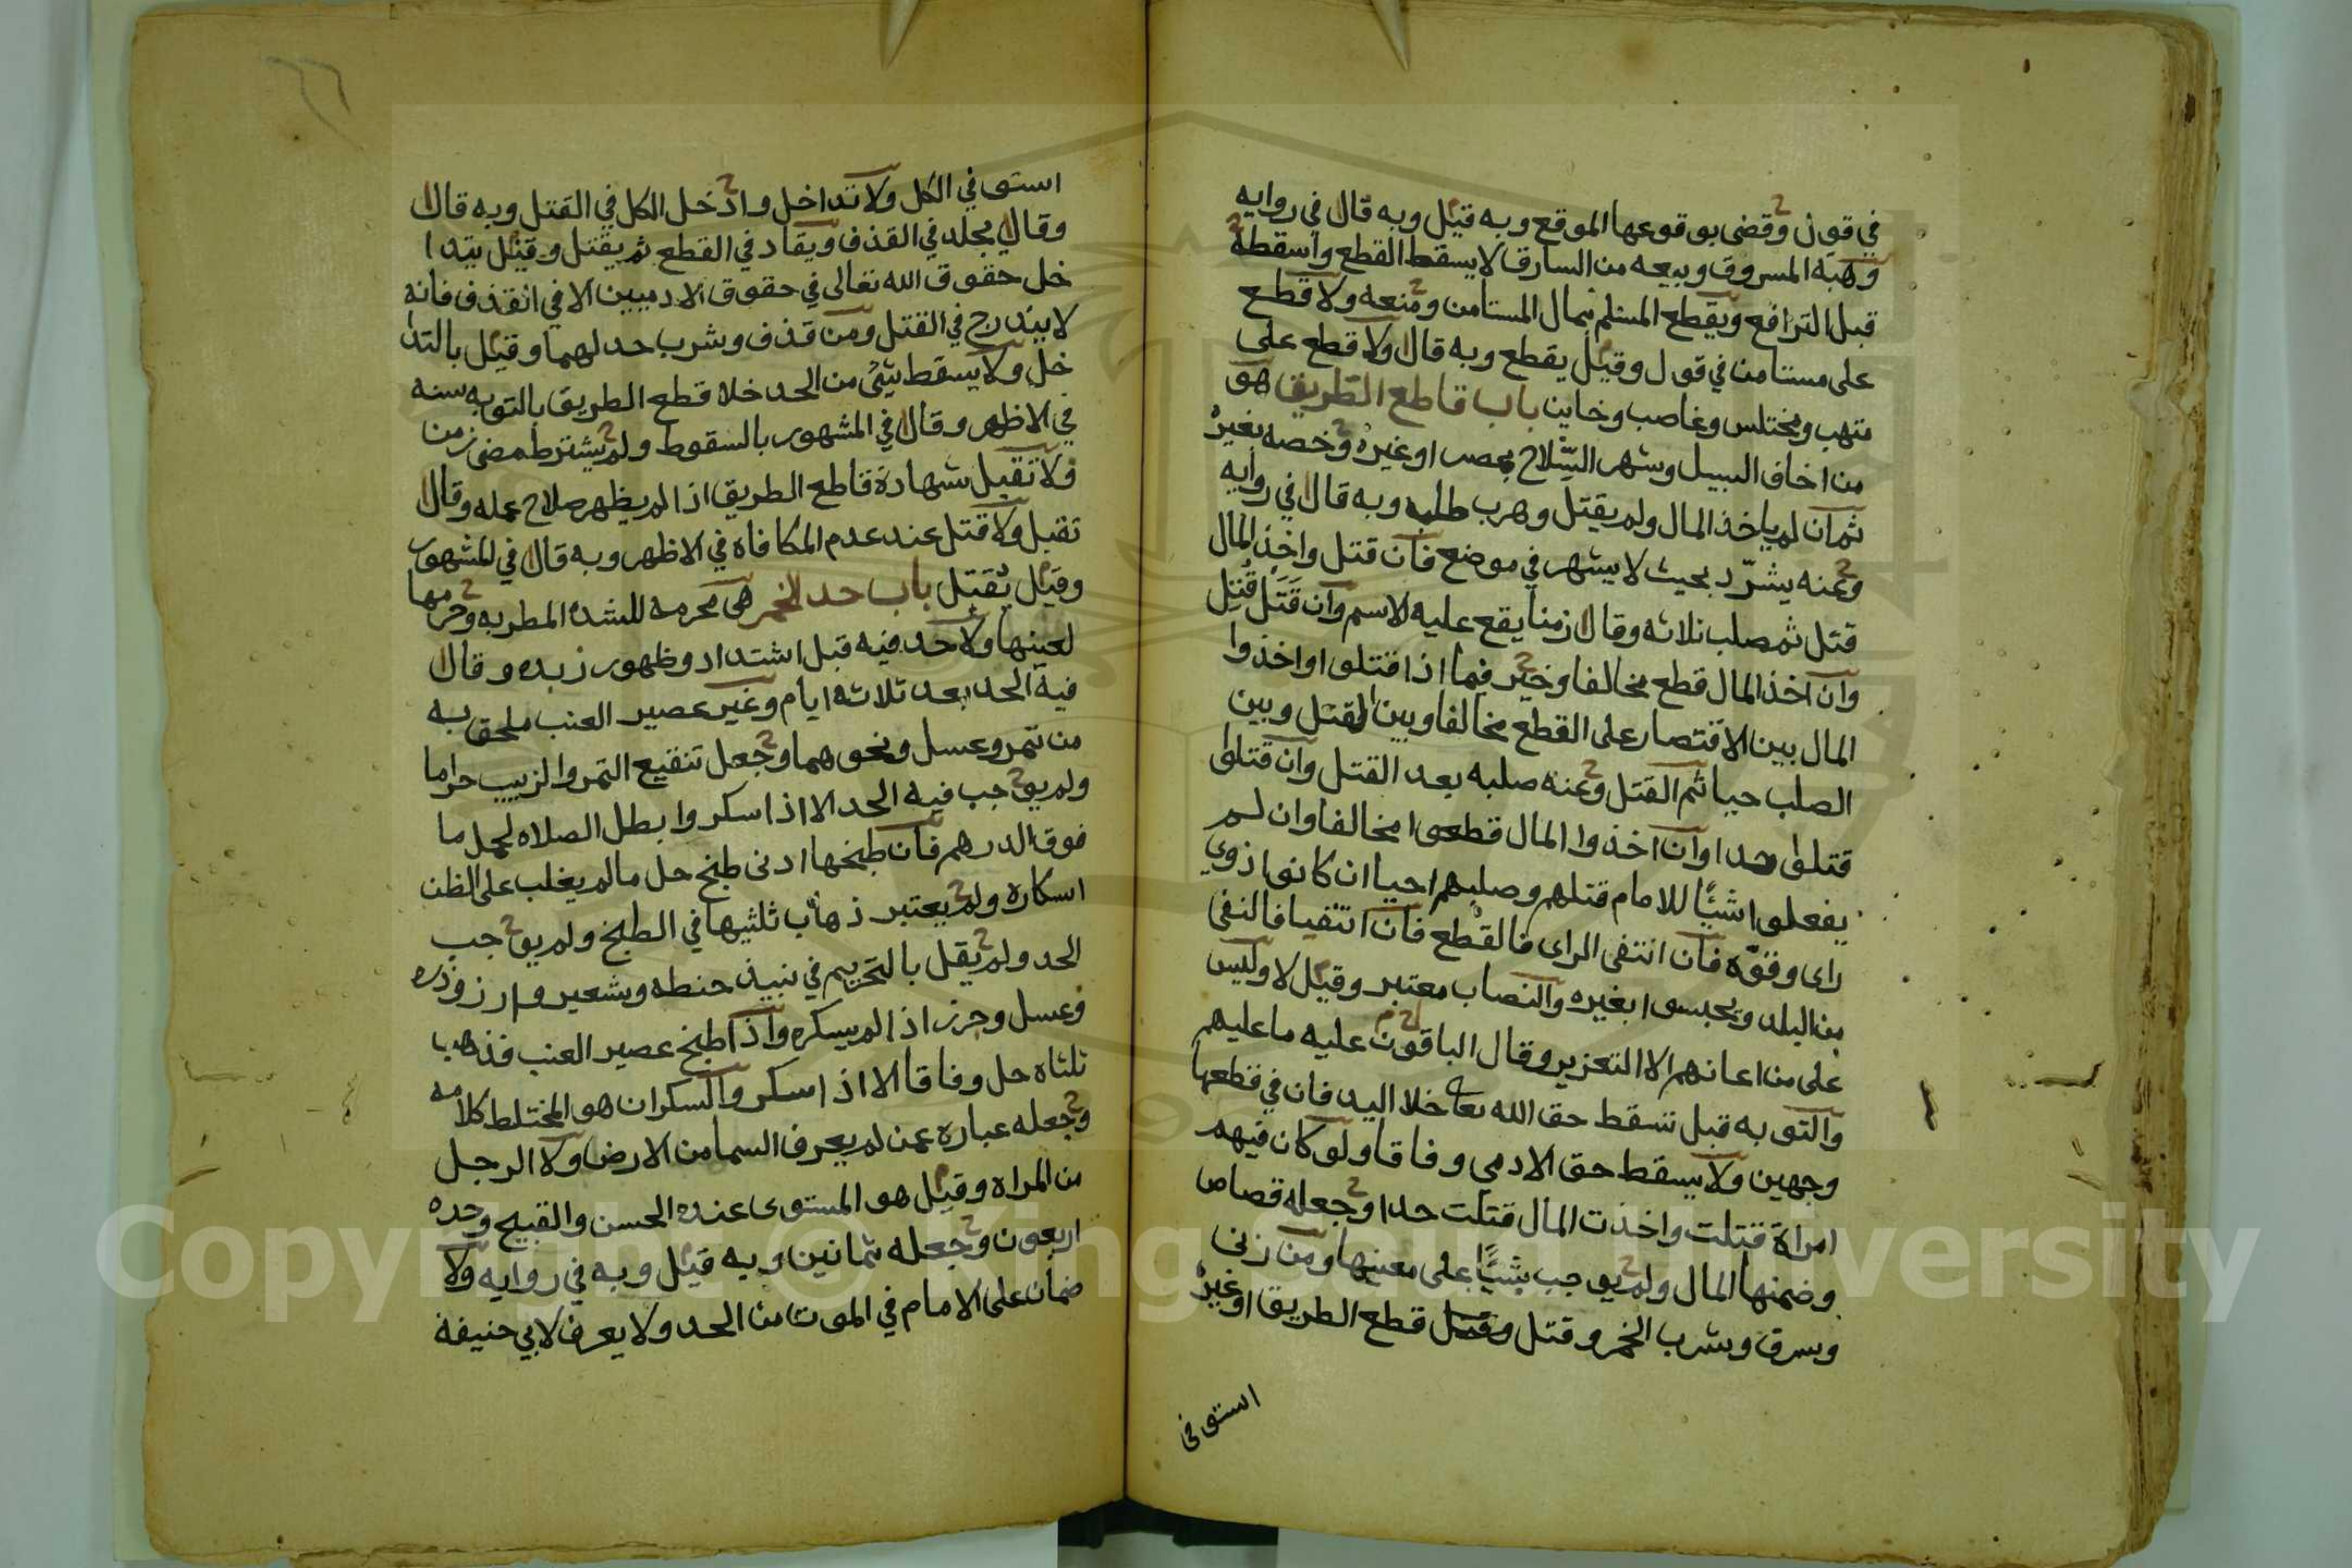 في قول وقضى بوقوعها الموقع وبه قيل وبه قال في روايه
وهبة المسروق وبيعه من السارق لا يسقط القطع واسقطه
قبل الترافع ويقطع المسلم بمال المستامن ومنعه ولا قطع
على مستامن في قول وقيل يقطع وبه قال ولا قطع على
منتهب ومختلس وغاصب وخاين باب قاطع الطريق هو
من اخاف السبيل وشهر السلاح بمصر او غيره وخصه بغيره
ثم ان لم ياخذ المال ولم يقتل وهرب طلب وبه قال في روايه
وعنه يشرد بحيث لا يشهر في موضع فان قتل واخذ المال
قتل ثم صلب ثلاثه وقال زمنا يقع عليه الاسم وان قَتَلَ قُتِل
وان اخذ المال قطع مخالفا وخير فيما اذا قتلوا واخذوا
المال بين الاقتصار على القطع مخالفا وبين القتل وبين
الصلب حيا ثم القتل وعنه صلبه بعد القتل وان قتلوا
قتلوا حدا وان اخذوا المال قطعوا مخالفا وان لم
يفعلوا شيئا للامام قتلهم وصلبهم احيا ان كانوا ذوي
راى وقوة فان انتفى الراى فالقطع فان انتفيا فالنفى
من البلد ويحبسوا بغيره والنصاب معتبر وقيل لا وليس
على من اعانهم الا التعزير وقال الباقون عليه ما عليهم
والتوبه قبل تسقط حق الله تعالى خلا اليد فان في قطعها
وجهين ولا يسقط حق الادمي وفاقا ولو كان فيهم
امراة قتلت واخذت المال قتلت حدا وجعله قصاص
وضمنها المال ولم يوجب شيئًا على معينها ومن زنى
وسرق وشرب الخمر وقتل قطع الطريق او غيره
استوفى
استوفى الكل ولا تداخل وادخل الكل في القتل وبه قال
وقال يجلد في القذف ويقاد في القطع ثم يقتل وقيل يتدا
خل حقوق الله تعالى في حقوق الادميين الا في القذف فانه
لا يندرج في القتل ومن قذف وشرب حد لهما وقيل بالتدا
خل ولا يسقط شئ من الحد خلا قطع الطريق بالتوبه سنه
في الاظهر وقال في المشهور بالسقوط ولم يشترط مضى زمن
ولا تقبل شهادة قاطع الطريق اذا لم يظهر صلاح عمله وقال
تقبل ولا قتل عند عدم المكافاه في الاظهر وبه قال في المشهور
وقيل يُقتل باب حد الخمر هى محرمه للشده المطربه وحرمها
لعينها ولا حد فيه قبل اشتداد وظهور زبده وقال
فيه الحد بعد ثلاثه ايام وغير عصير العنب ملحق به
من تمر وعسل ونحوهما وجعل تنقيع التمر والزبيب حراما
ولم يوجب فيه الحد الا اذا اسكر وابطل الصلاه لحمل ما
فوق الدرهم فان طبخها ادنى طبخ حل ما لم يغلب على الظن
اسكاره ولم يعتبر ذهاب ثلثيها في الطبخ ولم يوجب
الحد ولم يقل بالتحريم في نبيذ حنطه وشعير وارز وذره
وعسل وجزر اذا لم يسكره واذا طبخ عصير العنب فذهب
ثلثاه حل وفاقا الا اذا اسكر والسكران هو المختلط كلامه
وجعله عباره عمن لم يعرف السما من الارض ولا الرجل
من المراه وقيل هو المستوى عنده الحسن والقبيح وحده
اربعون وجعله ثمانين وبه قيل وبه في روايه ولا
ضمان على الامام في الموت من الحد ولا يعرف لابي حنيفة
Copyright © King Saud University